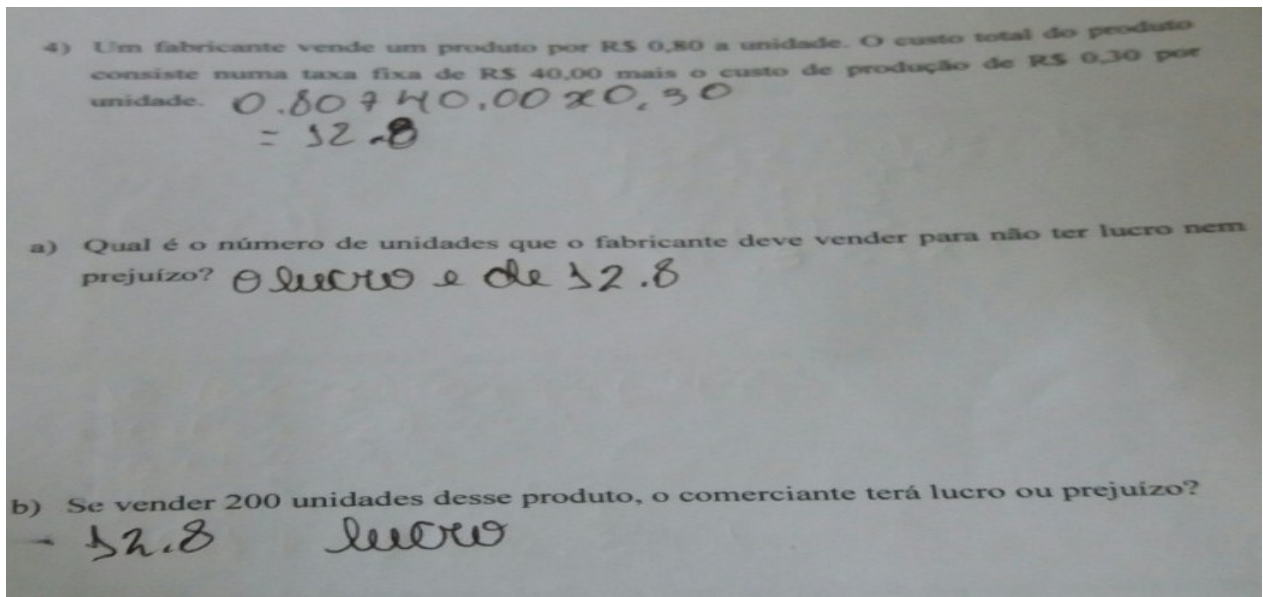 4) Um fabricante vende um produto por R$ 0,80 a unidade. O custo total do produto
consiste numa taxa fixa de R$ 40,00 mais o custo de produção de R$ 0,30 por
unidade. 0.80 + 40.00 x 0,30
= 12.8
a) Qual é o número de unidades que o fabricante deve vender para não ter lucro nem
prejuízo? O lucro e de 12.8
b) Se vender 200 unidades desse produto, o comerciante terá lucro ou prejuízo?
- 12.8 lucro